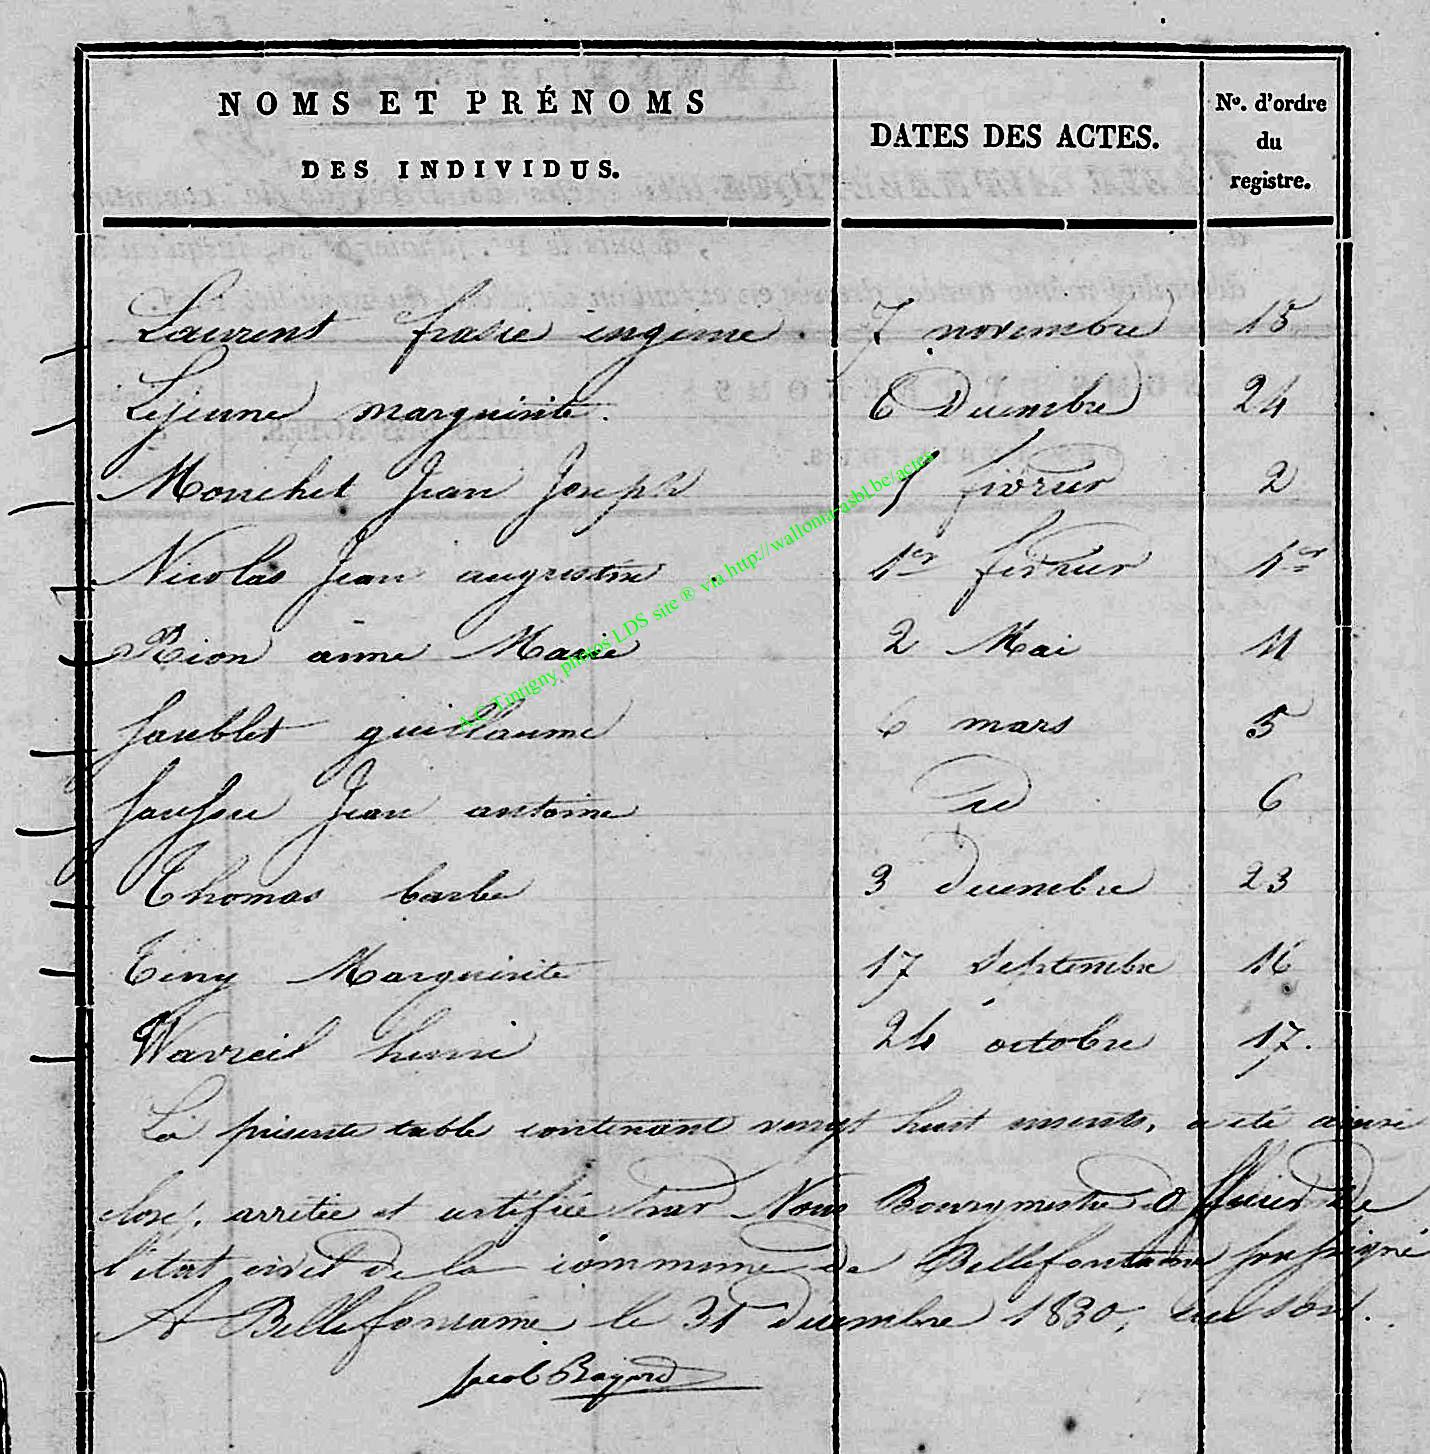 NOMS ET PRÉNOMS
DES INDIVIDUS.
DATES DES ACTES.
No. d'ordre
du
registre.
Laurent frasie ingenie. 7 novembre 15
Lejeune marguerite. 6 Decembre 24
Monchet Jean Joseph 5 fevrier 2
Nicolas Jean augustin 1er fevrier 1er
Rion anne Marie 2 Mai 11
Saublet guillaume 6 mars 5
Jean antoine id 6
Thomas barbe 3 decembre 23
Marguerite 17 Septembre 16
Wavreil henri 24 octobre 17.
La présente table contenant vingt huit, a été ainsi
close, arrêtée et certifiée par Nous Bourgmestre Officier de
l'état civil de la commune de Bellefontaine soussigné
A Bellefontaine le 31 Decembre 1830,
Jacob Bayard
A.C. Tintigny photos LDS site ® via http://wallonia-asbl.be/actes